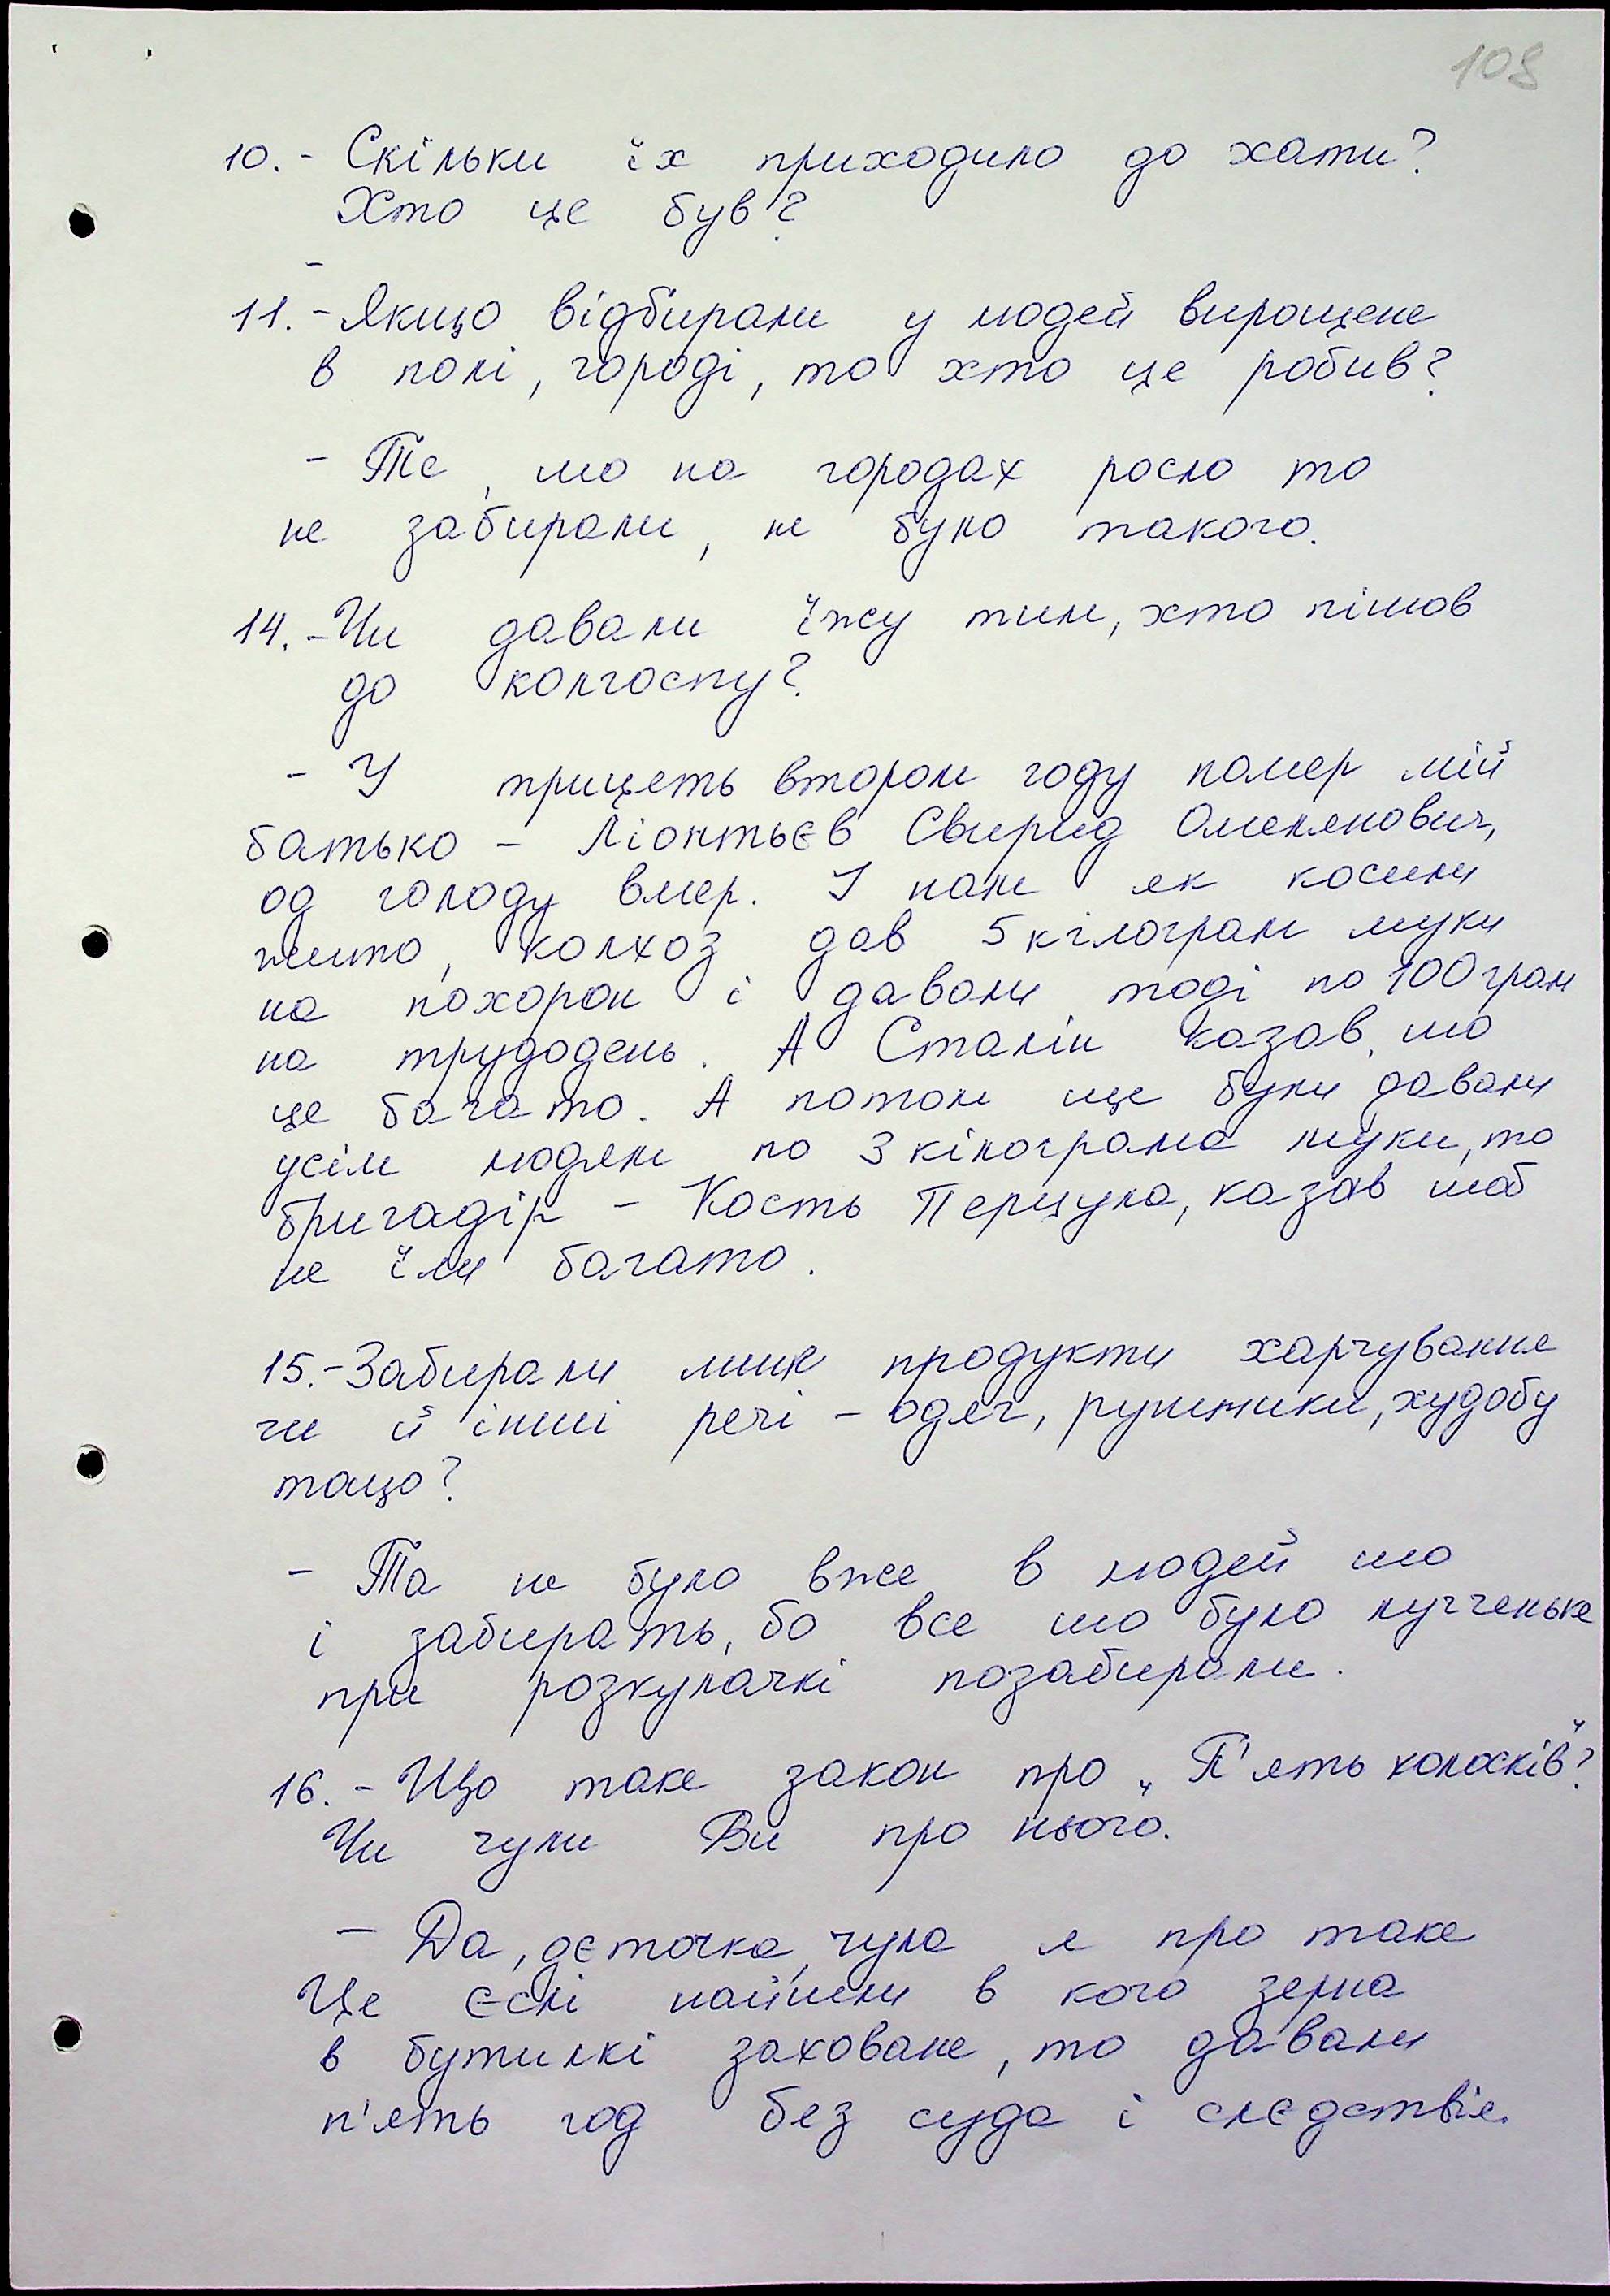 109
10. - Скільки їх приходило до хати?
Хто це був?
-
11. - Якщо відбирали у людей вирощене
в полі, городі, то хто це робив?
- Те, шо на городах росло то
не забирали, не було такого.
14. - Чи давали їжу тим, хто пішов
до колгоспу?
- У трицять втором году помер мій
батько - Ліонтьєв Свирид Омелянович,
од голоду вмер. І нам як косили
жито, колхоз дав 5 кілограм муки
на похорон і давали тоді по 100 грам
на трудодень. А Сталін казав, шо
це багато. А потом ще були давали
усім людям по 3 кілограма муки, то
бригадір - Кость Перцула, казав шоб
не їли багато.
15. - Забирали лише продукти харчування
чи й інші речі - одяг, рушники, худобу
тощо?
- Та не було вже в людей шо
і забирать, бо все шо було лучченьке
при розкулачкі позабирали.
16. - Що таке закон про „П'ять колосків"?
Чи чули Ви про нього.
- Да, дєточка, чула я про таке
Це єслі найшли в кого зерна
в бутилкі заховане, то давали
п'ять год без суда і слєдствія.